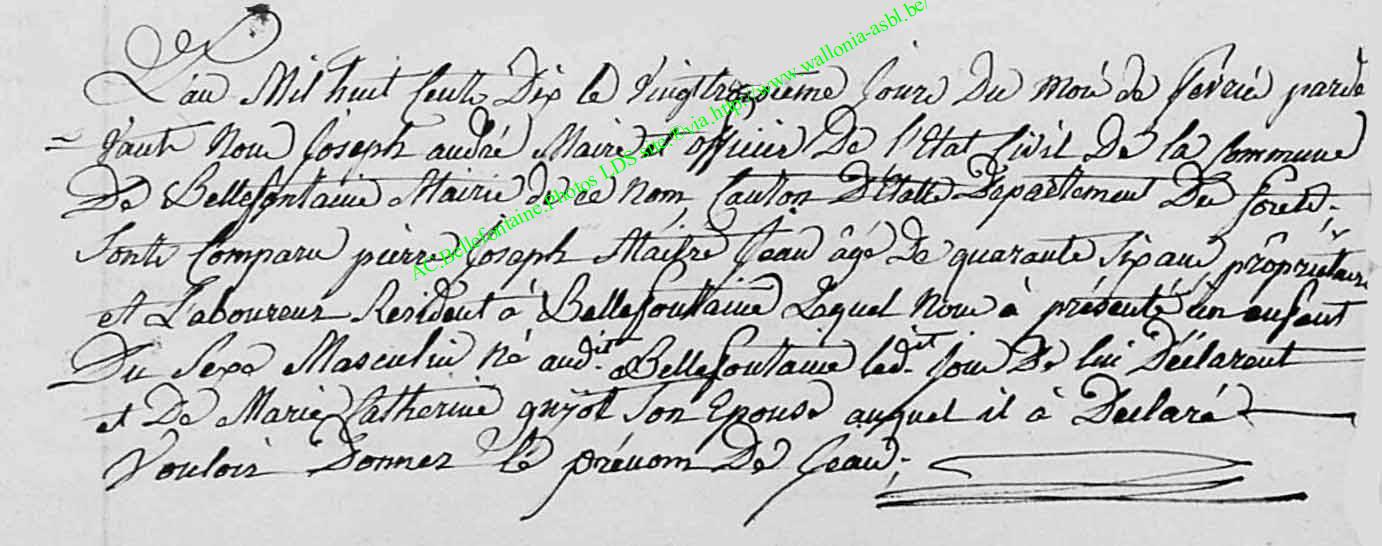 L'an Mil huit Cents Dix le Vingtroisieme Jour Du Mois de Fevrié parde
= Vants Nous Joseph andré Maire et officier De l'Etat Civil De la Commune
De Bellefontaine Mairie de ce Nom Canton D'Etalle Departement Des forets.
Sonts Comparu pierre Joseph Maitre Jean âgé De quarante Six ans, propriétaire
et Laboureur Resident à Bellefontaine Lequel Nous à présenté un enfant
Du Sexe Masculin né aud.it Bellefontaine led.it Jour De lui Déclarent
et De Marie Catherine guyot Son Epouse auquel il à Declaré
Vouloir Donner le prénom De Jean.
AC.Bellefontaine.Photos LDS via http://www.wallonia-asbl.be/